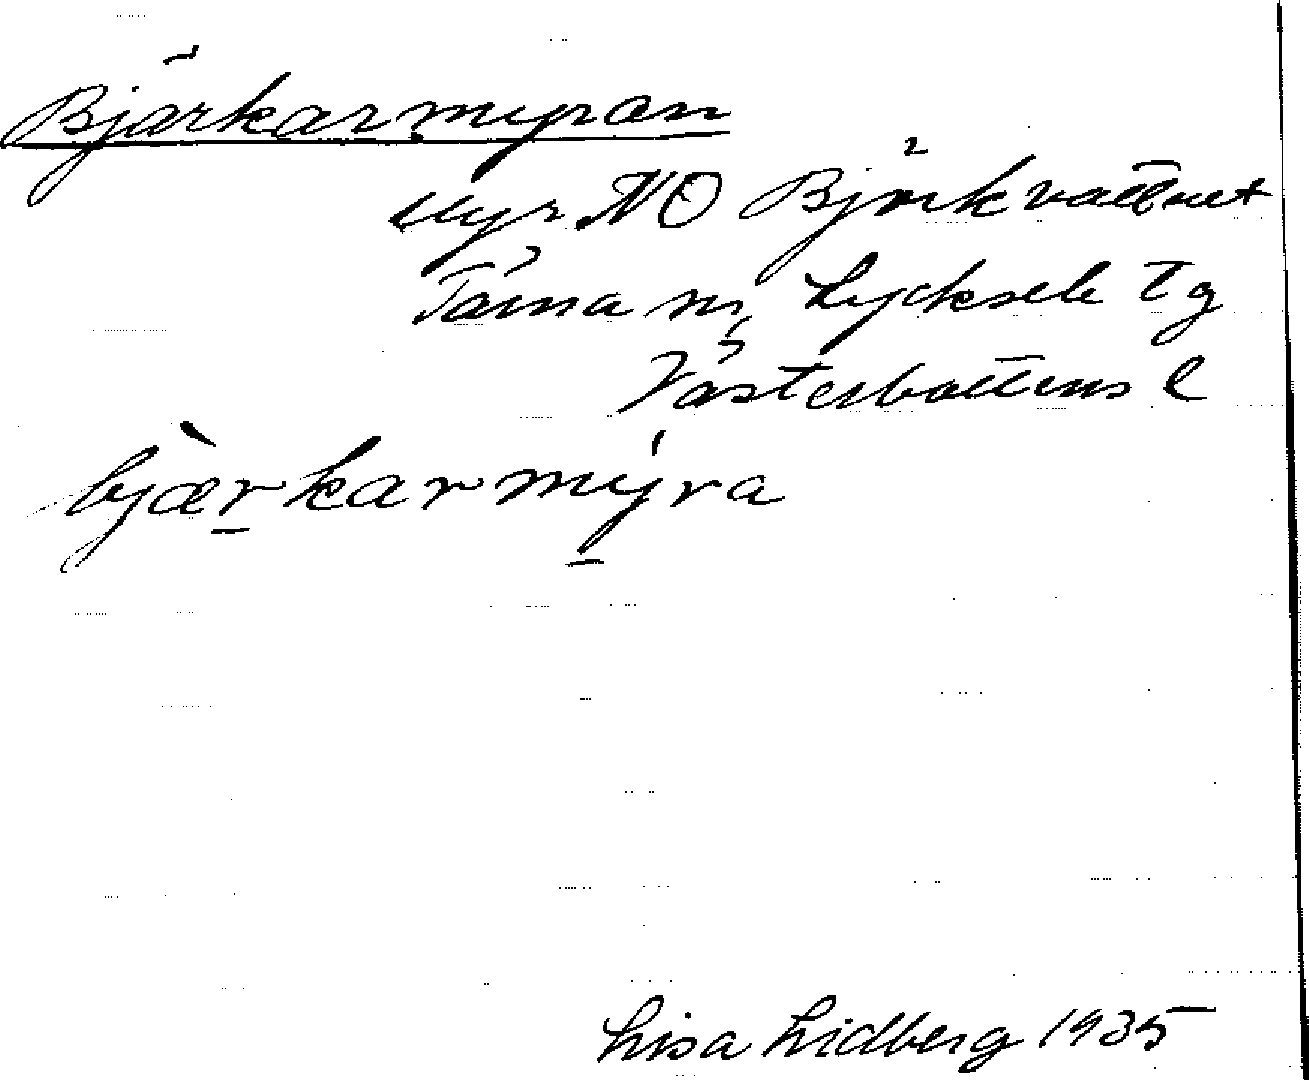 Bjärkarmyran
Myr NO Björkvattnet
Tärna sn, Lycksele tg
Västerbottens l
bjæ̀r̲karmý̲ra
Lisa Lidberg 1935